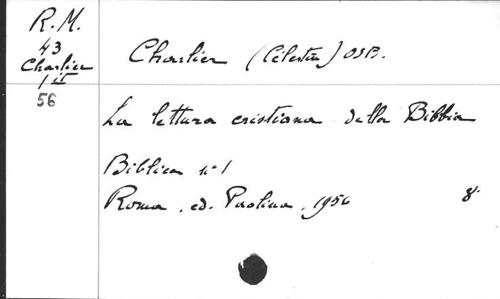 R.M.
43
Charlier
it
56
Charlier (Célestin) OSB.
La lettura cristiana della Bibbia
Biblica n° 1
Roma, ed. Paoline, 1956 8°